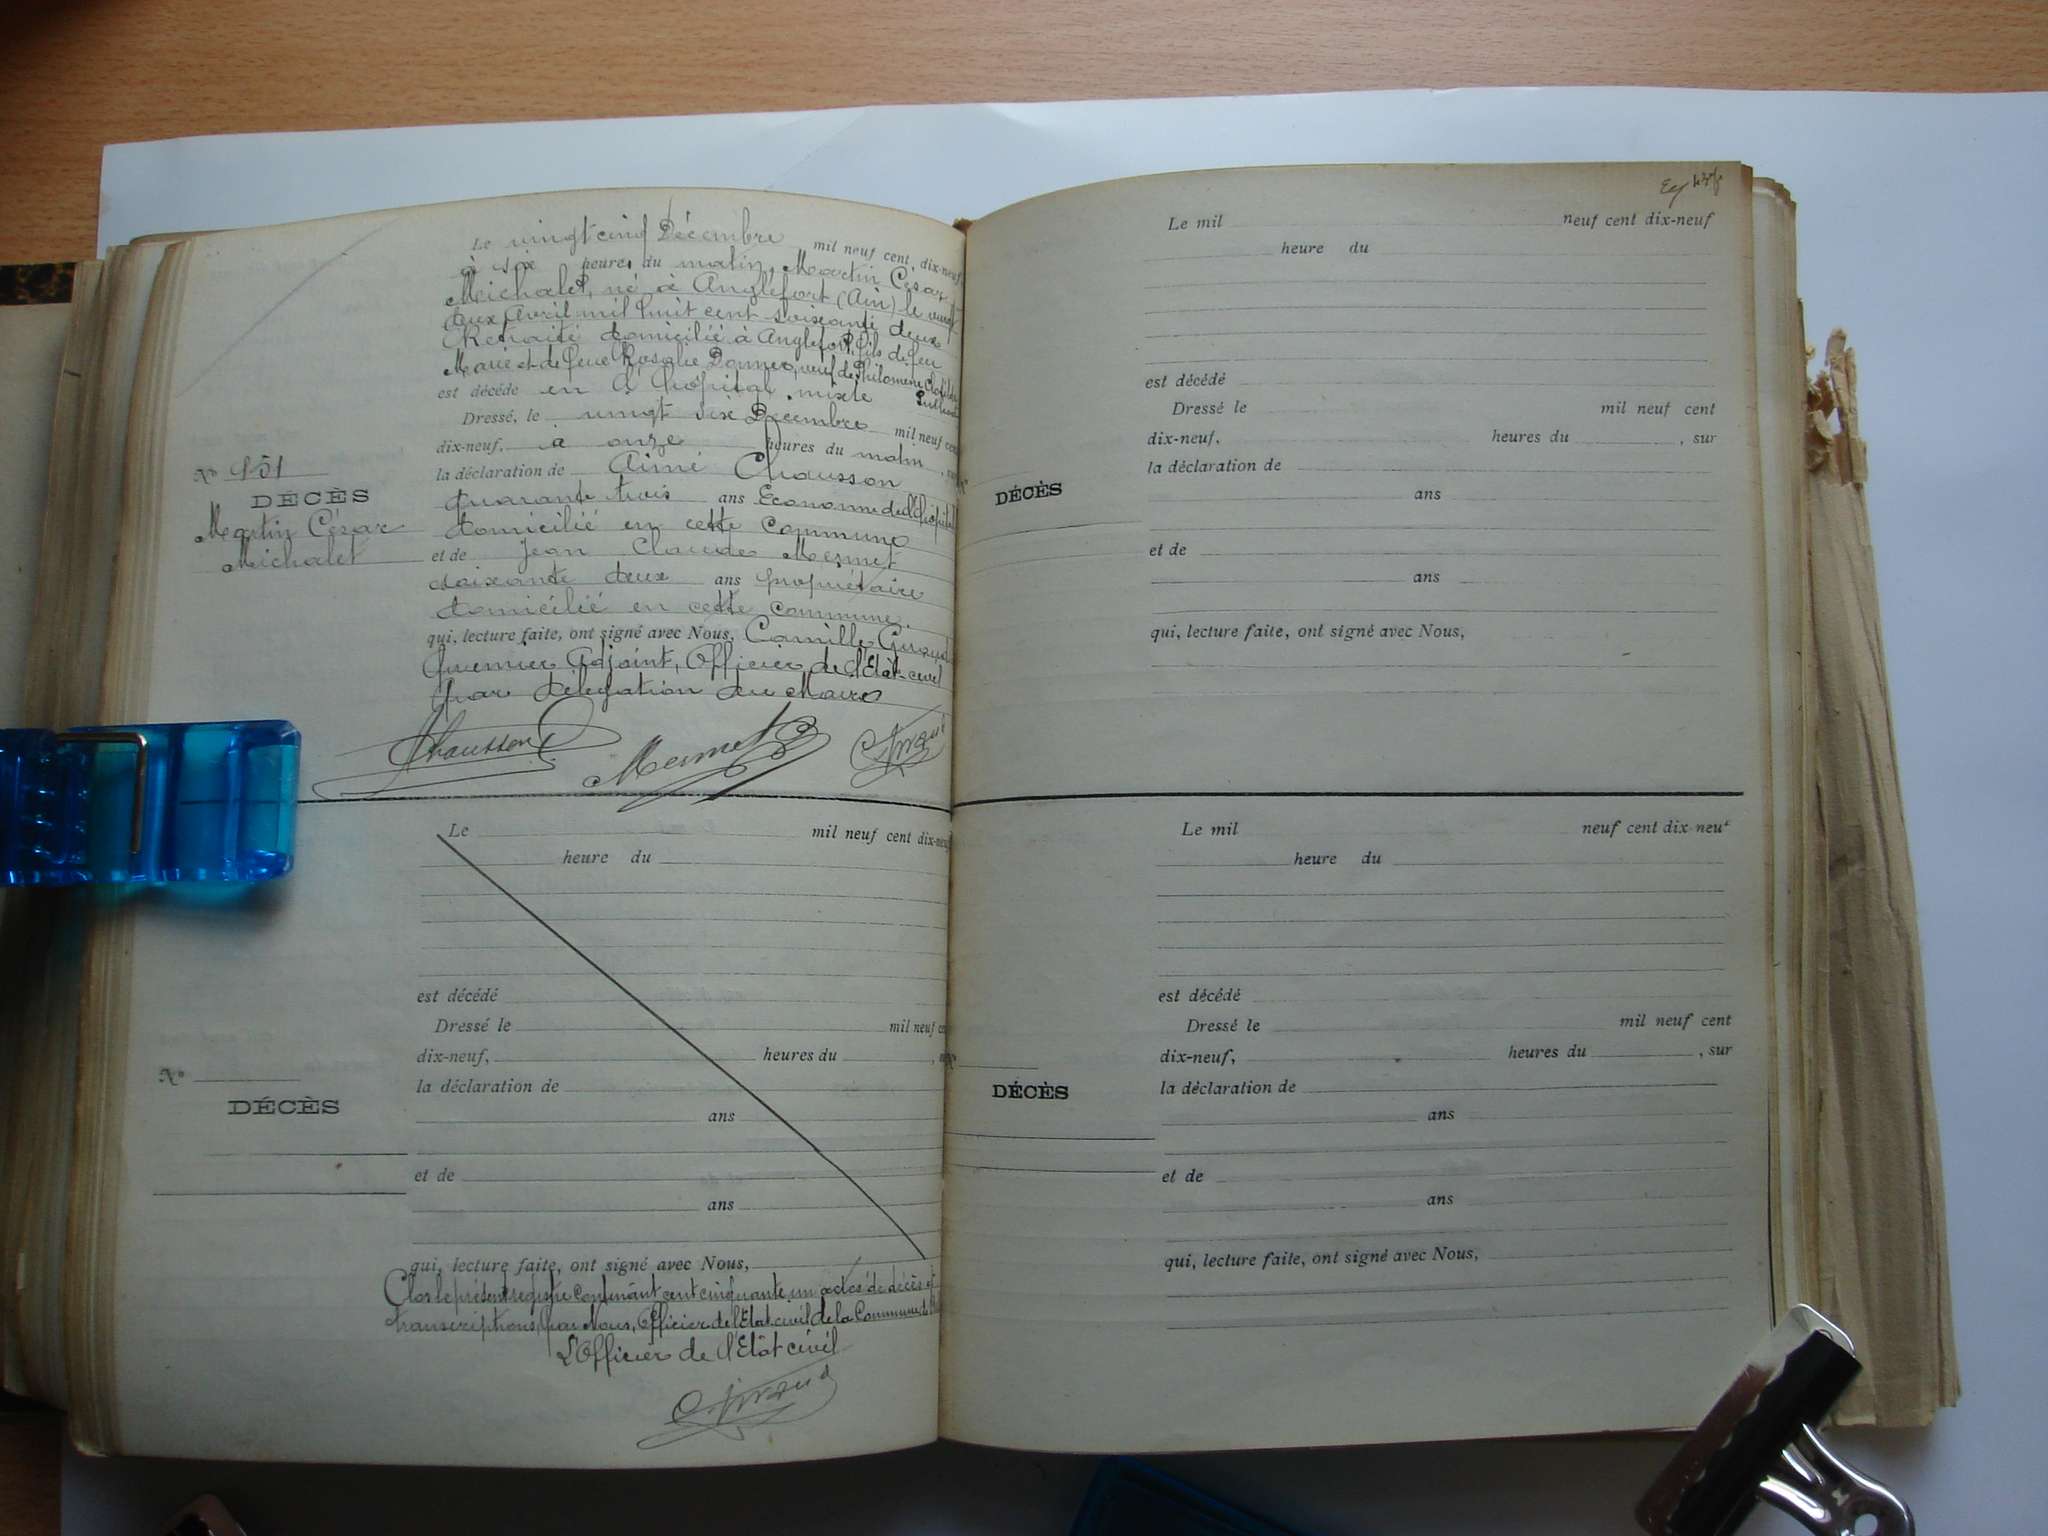 Le vingt cinq Décembre mil neuf cent dix-neuf
à six heures du matin, Martin César
Michalet, né à Anglefort (Ain) le vingt
deux Avril mil huit cent soixante deux
Retraité domicilié à Anglefort, fils de feu
Marie et de feue Rosalie Bonnet, veuf de Philomène Clotilde
est décédé en l'hôpital mixte
Dressé, le vingt six Décembre mil neuf cent
dix-neuf, à onze heures du matin, sur
la déclaration de Aimé Chausson
quarante trois ans Econome de l'hôpital
domicilié en cette commune
et de Jean Claude Mermet
soixante deux ans propriétaire
domicilié en cette commune.
qui, lecture faite, ont signé avec Nous, Camille Giraud
premier Adjoint, Officier de l'Etat-civil
par délégation du Maire
Chausson Mermet C. Giraud
No 151
DÉCÈS
Martin César
Michalet
Le mil neuf cent dix-neuf
heure du
est décédé
Dressé le mil neuf cent
dix-neuf, heures du
la déclaration de
ans
et de
ans
qui, lecture faite, ont signé avec Nous,
No
DÉCÈS
Clos le présent registre contenant cent cinquante un actes de décès et
transcriptions, par Nous, Officier de l'Etat civil de la Commune de
L'Officier de l'Etat civil
C. Giraud
Le mil neuf cent dix-neuf
heure du
est décédé
Dressé le mil neuf cent
dix-neuf, heures du , sur
la déclaration de
ans
et de
ans
qui, lecture faite, ont signé avec Nous,
DÉCÈS
Le mil neuf cent dix-neuf
heure du
est décédé
Dressé le mil neuf cent
dix-neuf, heures du , sur
la déclaration de
ans
et de
ans
qui, lecture faite, ont signé avec Nous,
DÉCÈS